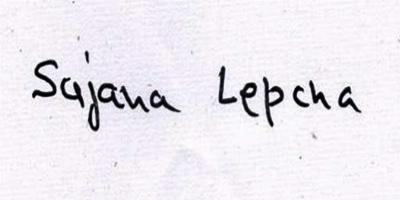 Sajana Lepcha